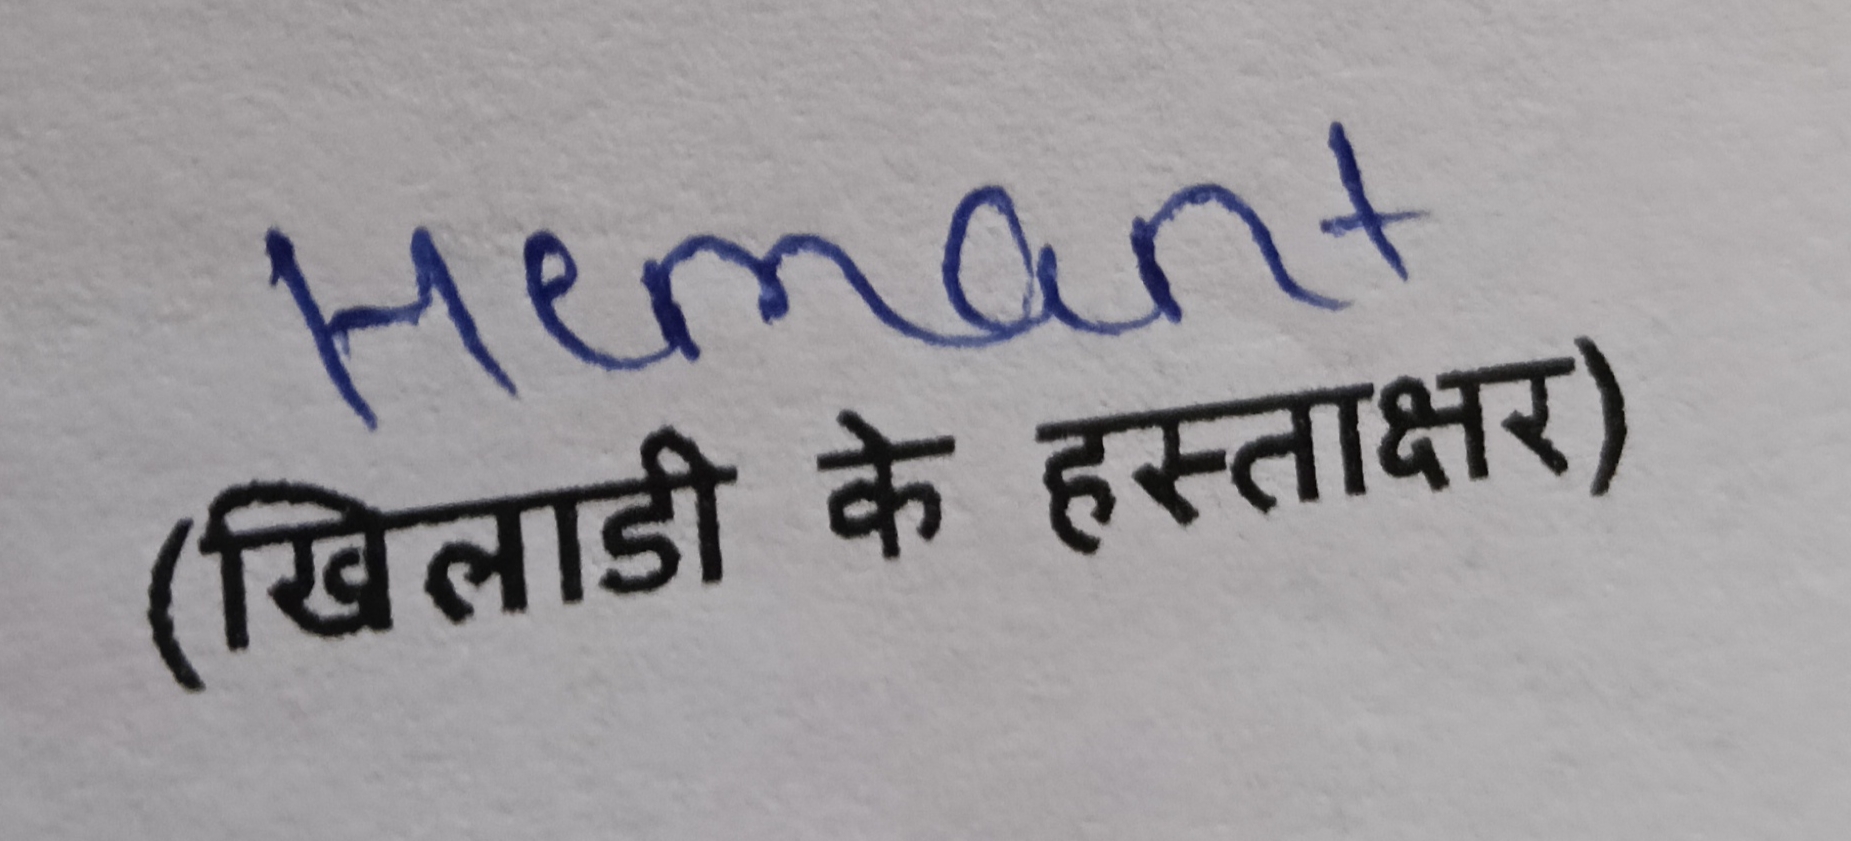 Hemant
(खिलाडी के हस्ताक्षर)